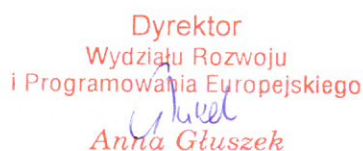 Dyrektor
Wydziału Rozwoju
i Programowania Europejskiego
Anna Głuszek